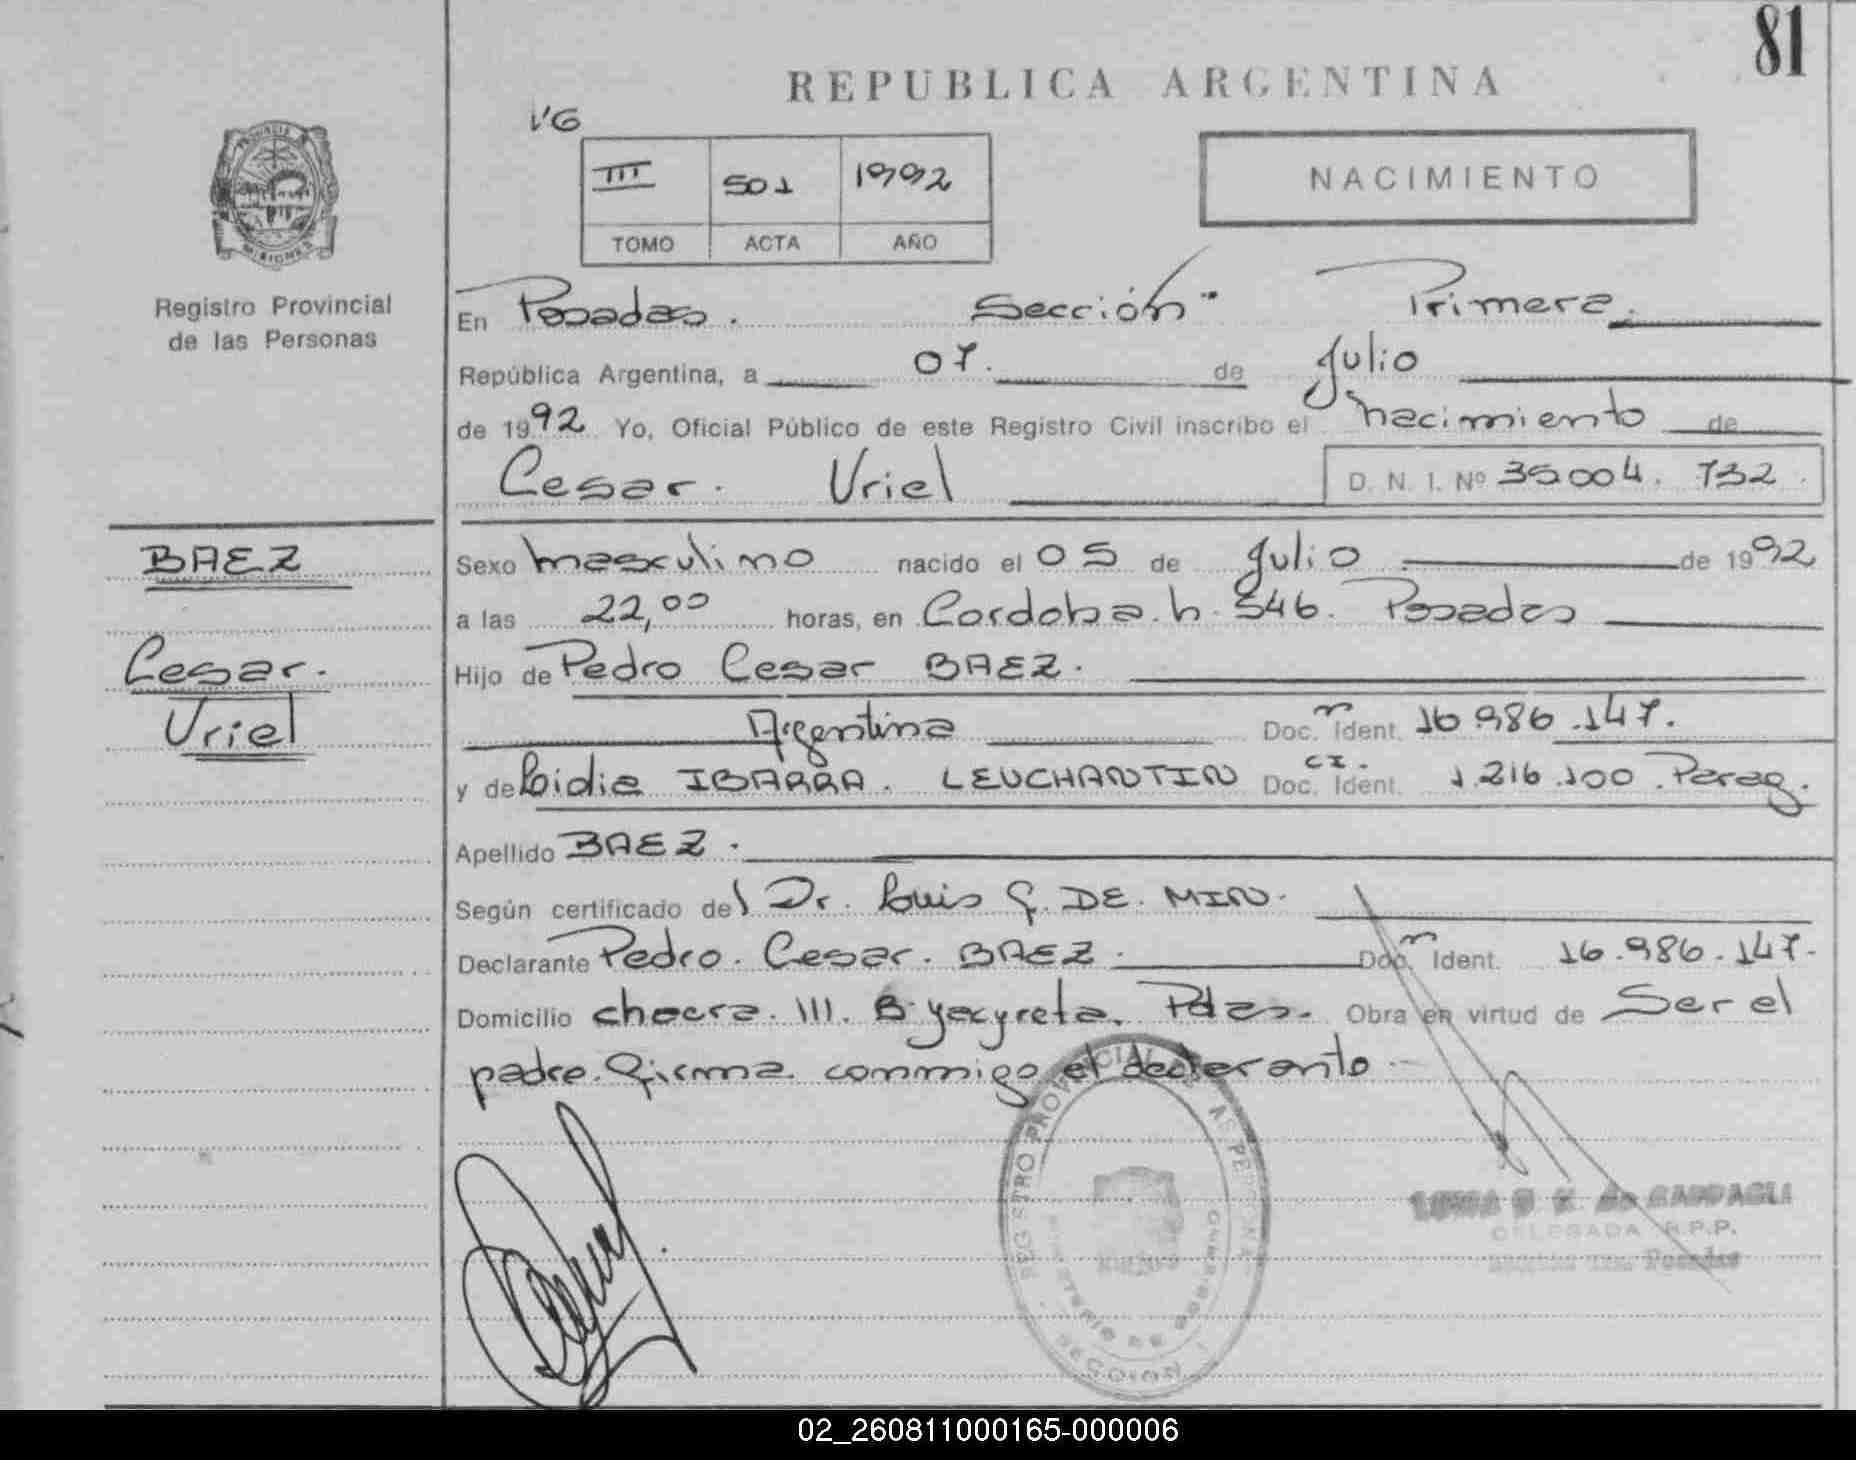 81
REPUBLICA ARGENTINA
PROVINCIA
MISIONES
Registro Provincial
de las Personas
VG
III 501 1992
TOMO ACTA AÑO
NACIMIENTO
En Posadas. Sección Primera.
República Argentina, a 07. de Julio
de 1992 Yo, Oficial Público de este Registro Civil inscribo el nacimiento de
Cesar. Uriel D. N. I. Nº 35.004. 732.
BAEZ
Cesar.
Uriel
Sexo masculino nacido el 05 de Julio de 1992
a las 22,00 horas, en Cordoba. h. 546. Posadas
Hijo de Pedro Cesar BAEZ.
Argentina Doc. Ident. 16.986.147.
y de Lidia IBARRA. LEUCHANTIN Doc. Ident. CI. 1.216.100. Parag.
Apellido BAEZ.
Según certificado del Dr. Luis G. DE. MIN.
Declarante Pedro. Cesar. BAEZ. Doc. Ident. 16.986.147.
Domicilio chacra. 111. B yacyreta. Pdas. Obra en virtud de Ser el
padre. Firma conmigo el declarante.
REGISTRO PROVINCIAL DE LAS PERSONAS
MINISTERIO DE GOBIERNO
SECCION
DELEGADA R.P.P.
Posadas
02_260811000165-000006